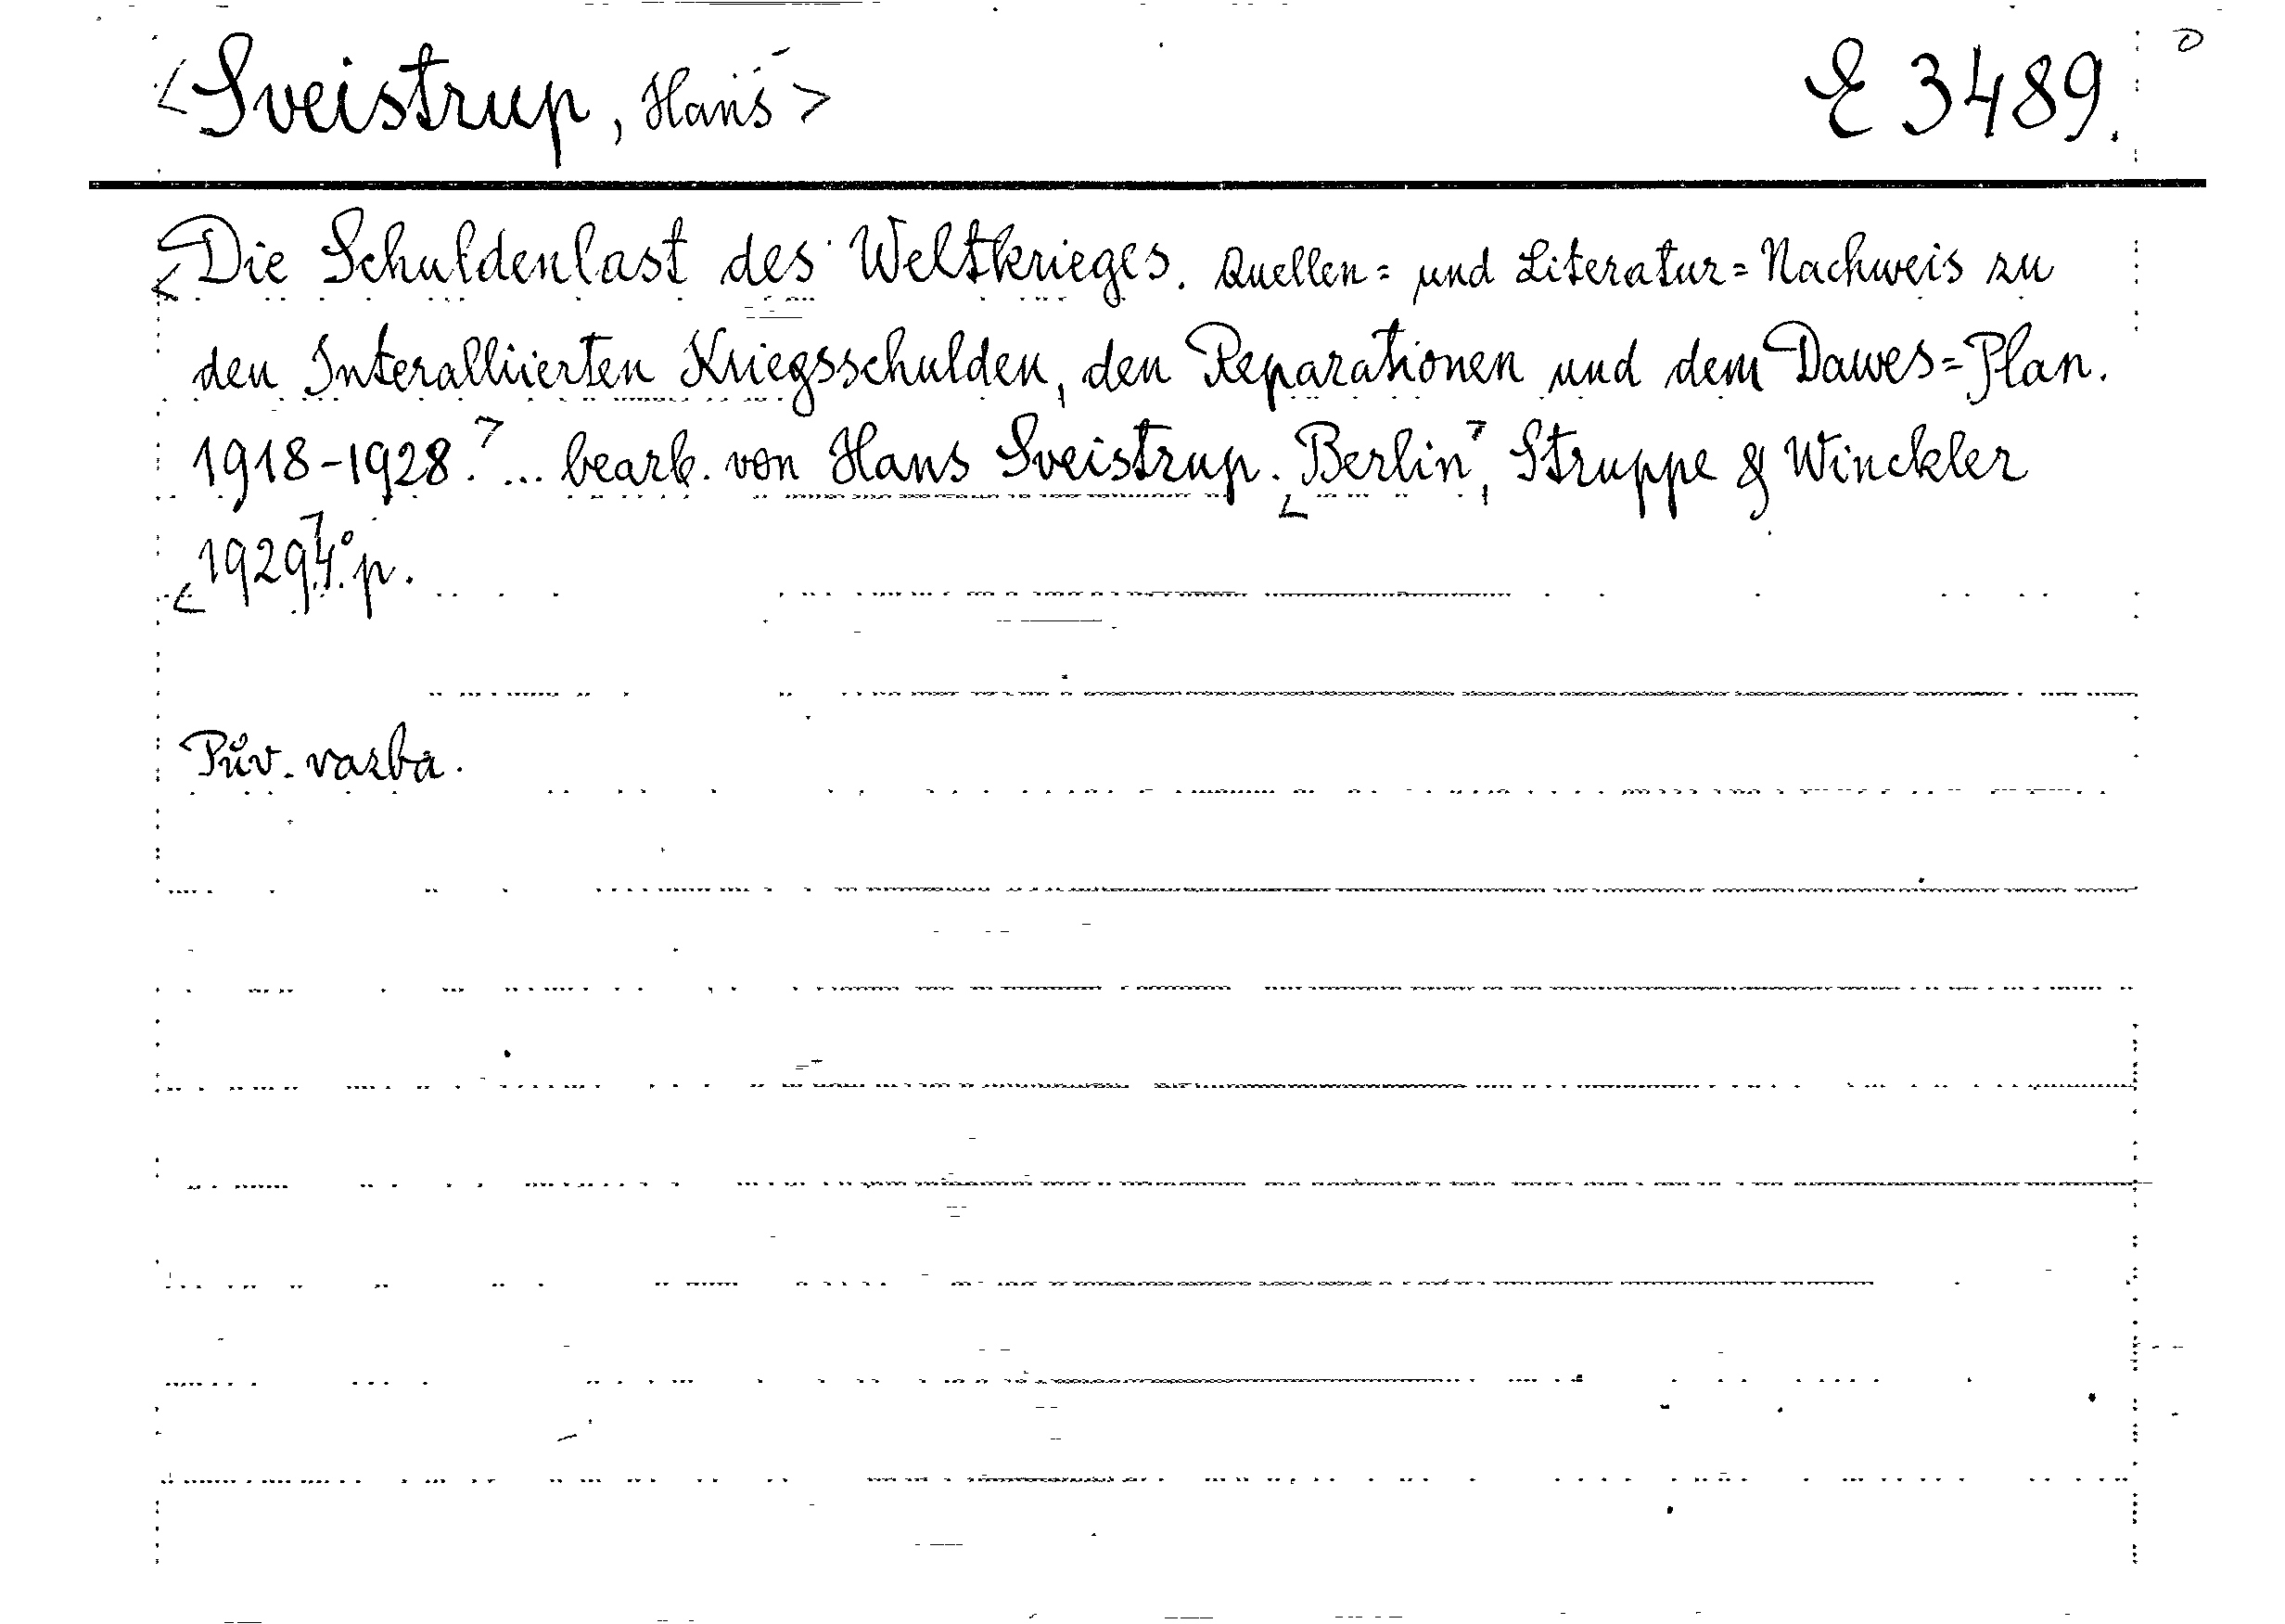 <Sveistrup, Hans> E 3489.
<Die Schuldenlast des Weltkrieges. Quellen= und Literatur=Nachweis zu
den Interalliierten Kriegsschulden, den Reparationen und dem Dawes=Plan.
1918-1928.> ... bearb. von Hans Sveistrup. <Berlin>, Struppe & Winckler
<1929> 4°. p.
Pův. vazba.